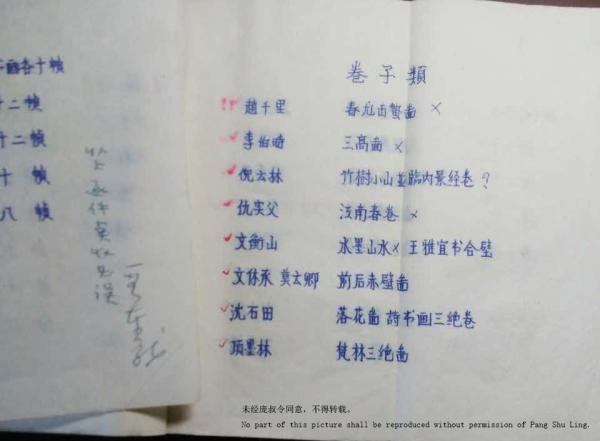 各十幀
十二幀
十二幀
十 幀
八 幀
卷子類
趙千里 春龙出蟄啚 ×
李伯時 三高啚 ×
倪云林 竹樹小山並臨内景经卷 ?
仇实父 江南春卷 ×
文衡山 水墨山水× 王雅宜书合璧
文休承 莫云卿 前后赤壁啚
沈石田 落花啚 詩书画三绝卷
项墨林 梵林三绝啚
未经庞叔令同意，不得转载。
No part of this picture shall be reproduced without permission of Pang Shu Ling.